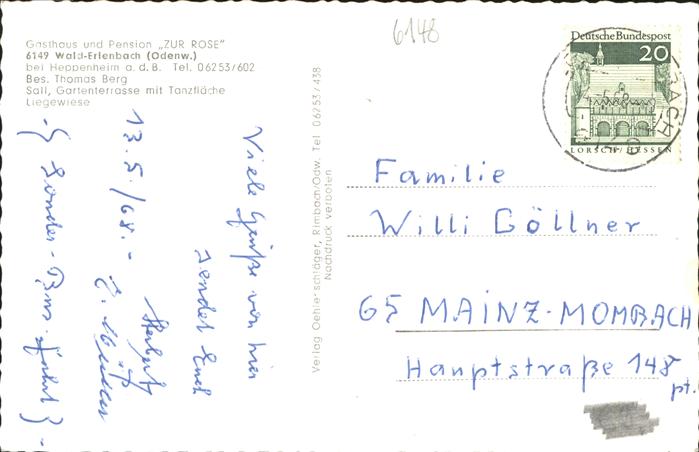 Gasthaus und Pension „ZUR ROSE"
6149 Wald-Erlenbach (Odenw.)
bei Heppenheim a. d. B. Tel. 06253/602
Bes. Thomas Berg
Sall, Gartenterrasse mit Tanzfläche
Liegewiese
6148
Deutsche Bundespost
20
LORSCH/HESSEN
Verlag Oehlerschläger, Rimbach/Odw. Tel 06253/438
Nachdruck verboten
Viele Grüße von hier
sendet Euch
Herbert
13.5./68.-
-{ Sonder-Bus-Fahrt }-
Familie
Willi Göllner
65 MAINZ-MOMBACH
Hauptstraße 148
pt.